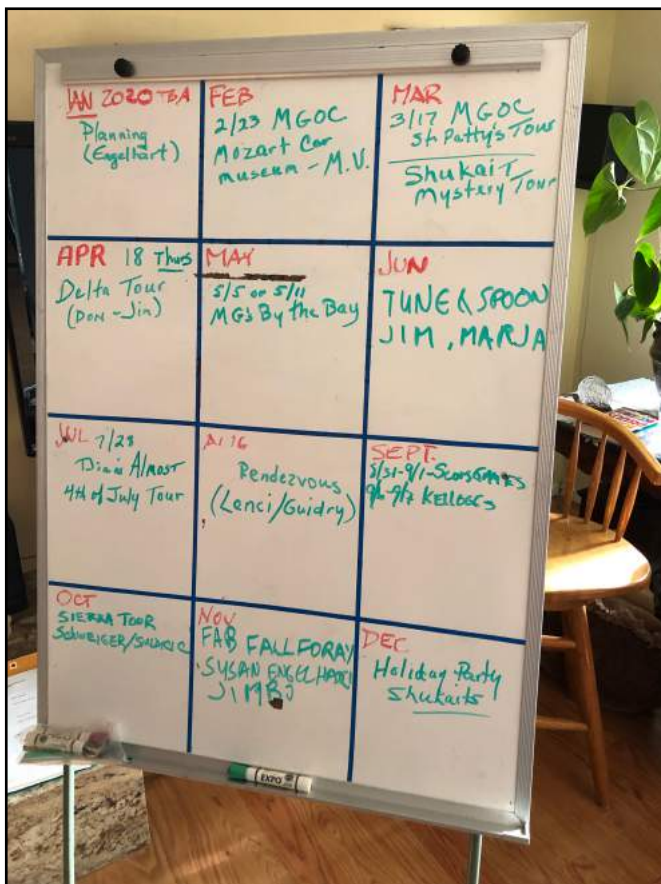 JAN 2020 TBA
Planning
(Engelhart)
FEB
2/23 MGOC
Mozart Car
museum - M.V.
MAR
3/17 MGOC
St. Patty's Tour
Shukait
Mystery Tour
APR 18 Thurs
Delta Tour
(Don - Jim)
MAY
5/5 or 5/11
MG's By the Bay
JUN
TUNE & SPOON
JIM, MARJA
JUL 7/28
Almost
4th of July Tour
Rendezvous
(Lenci/Guidry)
SEPT.
8/31-9/1-
9/7 KELLOGGS
OCT
SIERRA TOUR
Schweiger/
NOV
FAB FALL FORAY
SUSAN ENGELHART
JIMBO
DEC
Holiday Party
Shukaits
EXPO